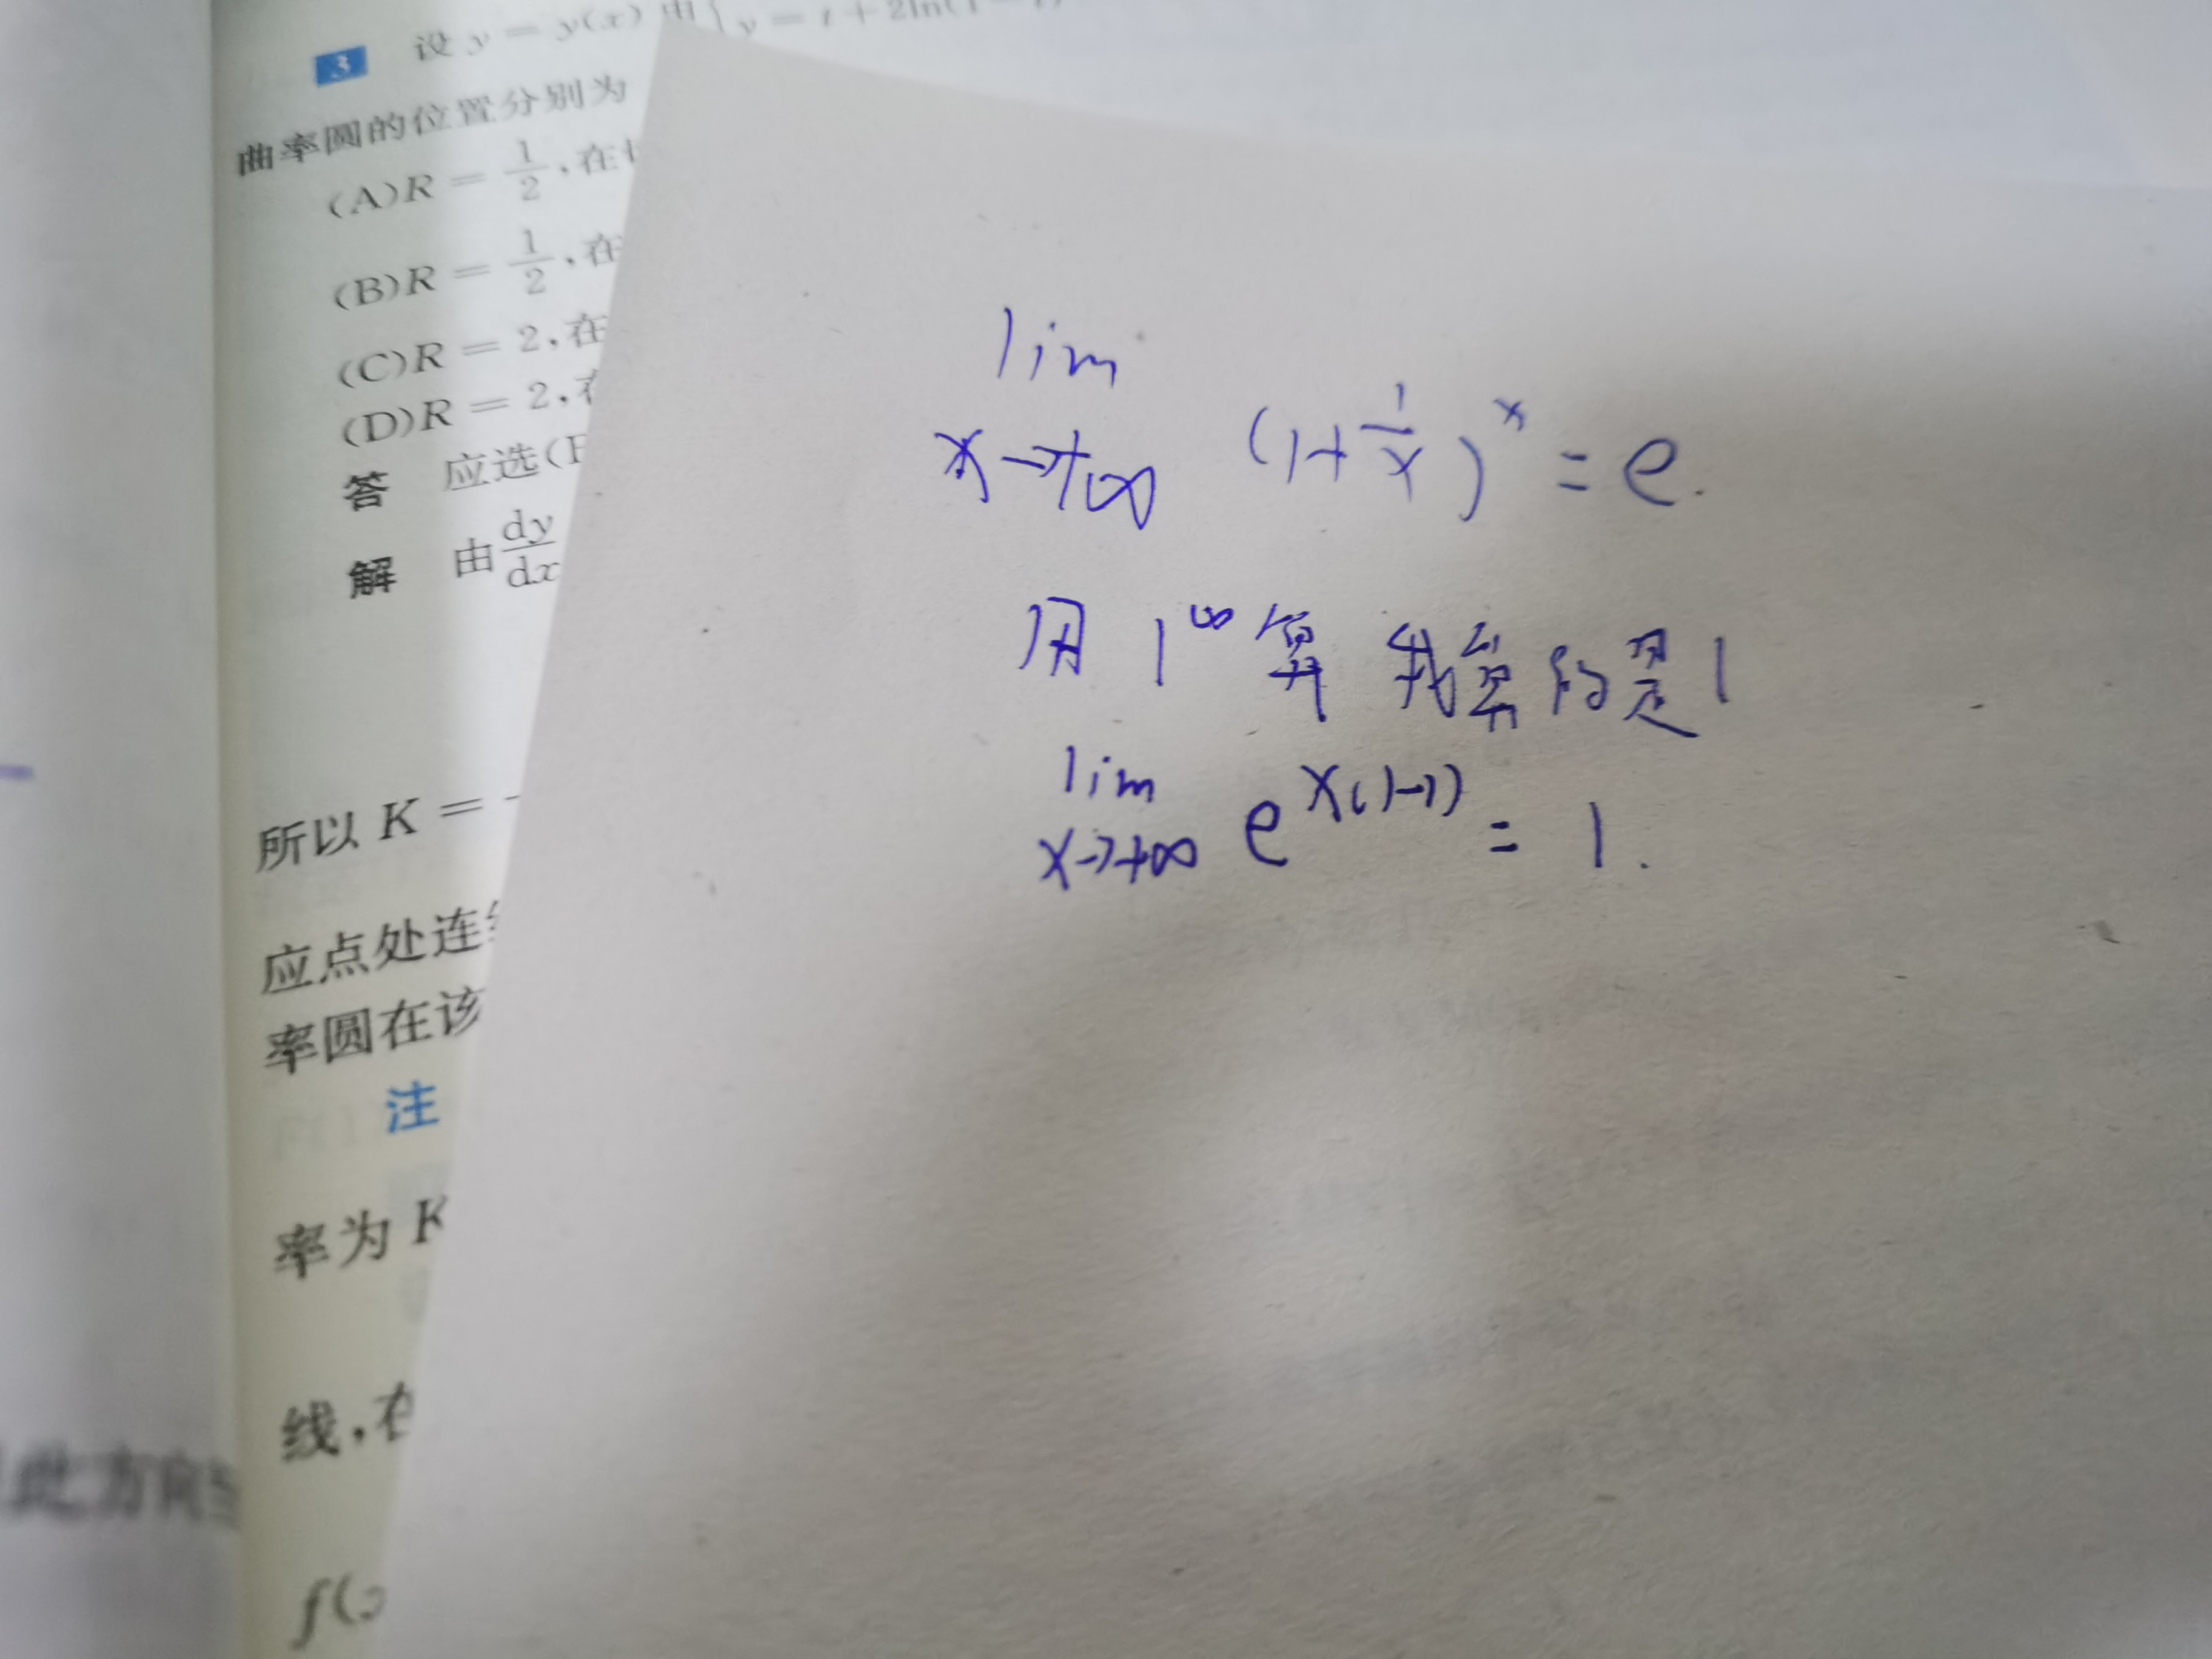 3 设 y = y(x) 由 y = t + 2ln(1 - t)
曲率圆的位置分别为
(A)R = 1/2,在
(B)R = 1/2,在
(C)R = 2,在
(D)R = 2,在
答 应选(B
解 由 dy/dx
所以 K =
应点处连续
率圆在该
注
率为 K
线,在
f(x
此方向
lim x→+∞ (1+1/x)^x = e.
用 1^∞ 算 我算的是1
lim x→+∞ e^x(1-1) = 1.